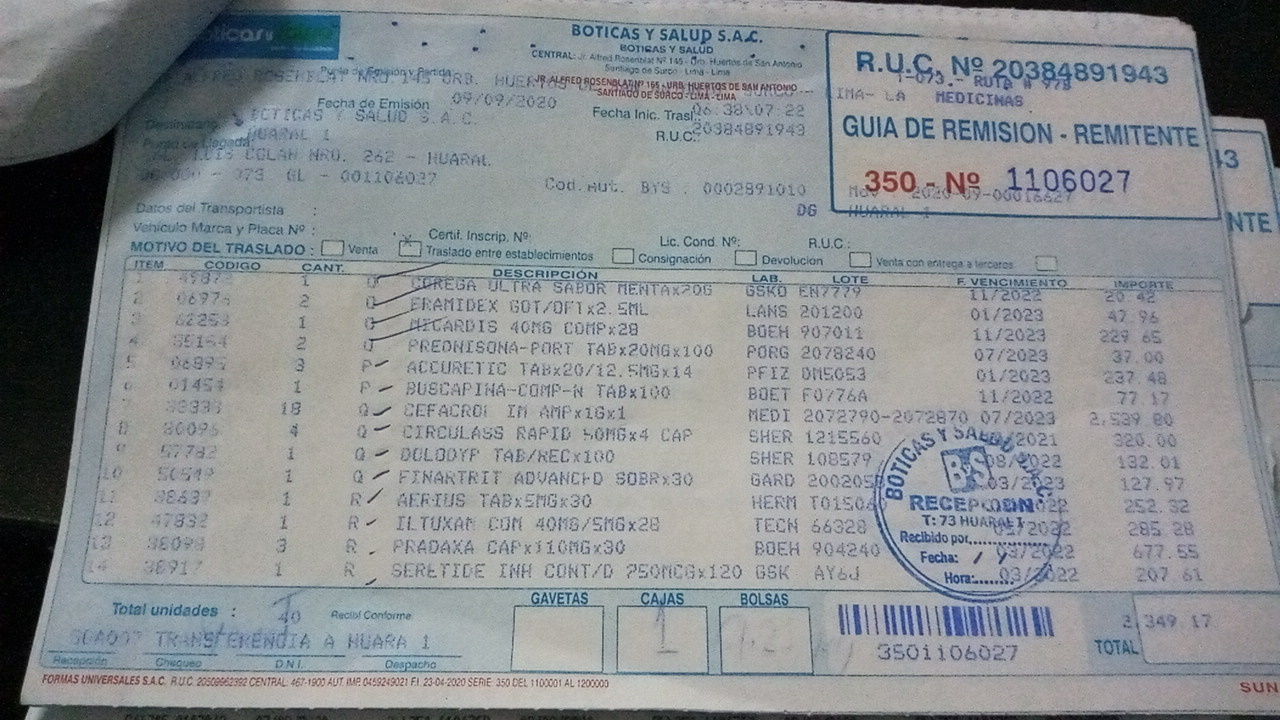 BOTICAS Y SALUD S.A.C.
BOTICAS Y SALUD
CENTRAL: Jr. Alfred Rosenblat Nº 165 - Urb. Huertos de San Antonio
Santiago de Surco - Lima - Lima
JR. ALFREDO ROSENBLAT Nº 165 - URB. HUERTOS DE SAN ANTONIO
SANTIAGO DE SURCO - LIMA - LIMA
R.U.C. Nº 20384891943
T-073.- RUTA # 978
MEDICINAS
GUIA DE REMISION - REMITENTE
350 - Nº 1106027
Fecha de Emisión 09/09/2020
Fecha Inic. Trasl.: 06:38\07:22
R.U.C.: 20384891943
BOTICAS Y SALUD S.A.C.
HUARAL 1
Punto de Llegada:
LUIS COLAN NRO. 262 - HUARAL
073 GL - 001106027
Cod.Aut. BYS : 0002891010
2020-09-00016627
DG HUARAL 1
Datos del Transportista :
Vehículo Marca y Placa Nº :
Certif. Inscrip. Nº
Lic. Cond. Nº:
R.U.C :
MOTIVO DEL TRASLADO : Venta Traslado entre establecimientos Consignación Devolución Venta con entrega a terceros
ITEM CÓDIGO CANT. DESCRIPCIÓN LAB. LOTE F. VENCIMIENTO IMPORTE
1 1 Q COREGA ULTRA SABOR MENTAx20G GSKO EN7779 11/2022 20.42
2 2 Q ERAMIDEX GOT/OFTx2.5ML LANS 201200 01/2023 47.96
3 62253 1 Q MICARDIS 40MG COMPx28 BOEH 907011 11/2023 229.65
4 2 Q PREDNISONA-PORT TABx20MGx100 PORG 2078240 07/2023 37.00
5 06895 3 P ACCURETIC TABx20/12.5MGx14 PFIZ DM5053 01/2023 237.48
6 01454 1 P BUSCAPINA-COMP-N TABx100 BOET F0776A 11/2022 77.17
7 18 Q CEFACROL IM AMPx1Gx1 MEDI 2072790-2072870 07/2023 2,539.80
8 30096 4 Q CIRCULASS RAPID 50MGx4 CAP SHER 1215560 /2021 320.00
9 57782 1 Q DOLODYP TAB/RECx100 SHER 108579 08/2022 132.01
10 50549 1 Q FINARTRIT ADVANCED SOBRx30 GARD 03/2023 127.97
11 38637 1 R AERIUS TABx5MGx30 HERM 252.32
12 47832 1 R ILTUXAM COM 40MG/5MGx28 TECN 66328 05/2022 285.28
13 38098 3 R PRADAXA CAPx110MGx30 BOEH 904240 03/2022 677.55
14 38917 1 R SERETIDE INH CONT/D 250MCGx120 GSK AY6J 03/2022 207.61
BOTICAS Y SALUD S.A.C.
B&S
RECEPCION
T: 73 HUARAL 1
Recibido por
Fecha: / /
Hora:
Total unidades : 40
Recibí Conforme
GAVETAS CAJAS BOLSAS
1
TRANSFERENCIA A HUARA 1
Recepción Chequeo D.N.I. Despacho
3501106027
TOTAL 349.17
FORMAS UNIVERSALES S.A.C. R.U.C. 20509962392 CENTRAL: 467-1900 AUT. IMP. 0459249021 F.I. 23-04-2020 SERIE: 350 DEL 1100001 AL 1200000
SUN